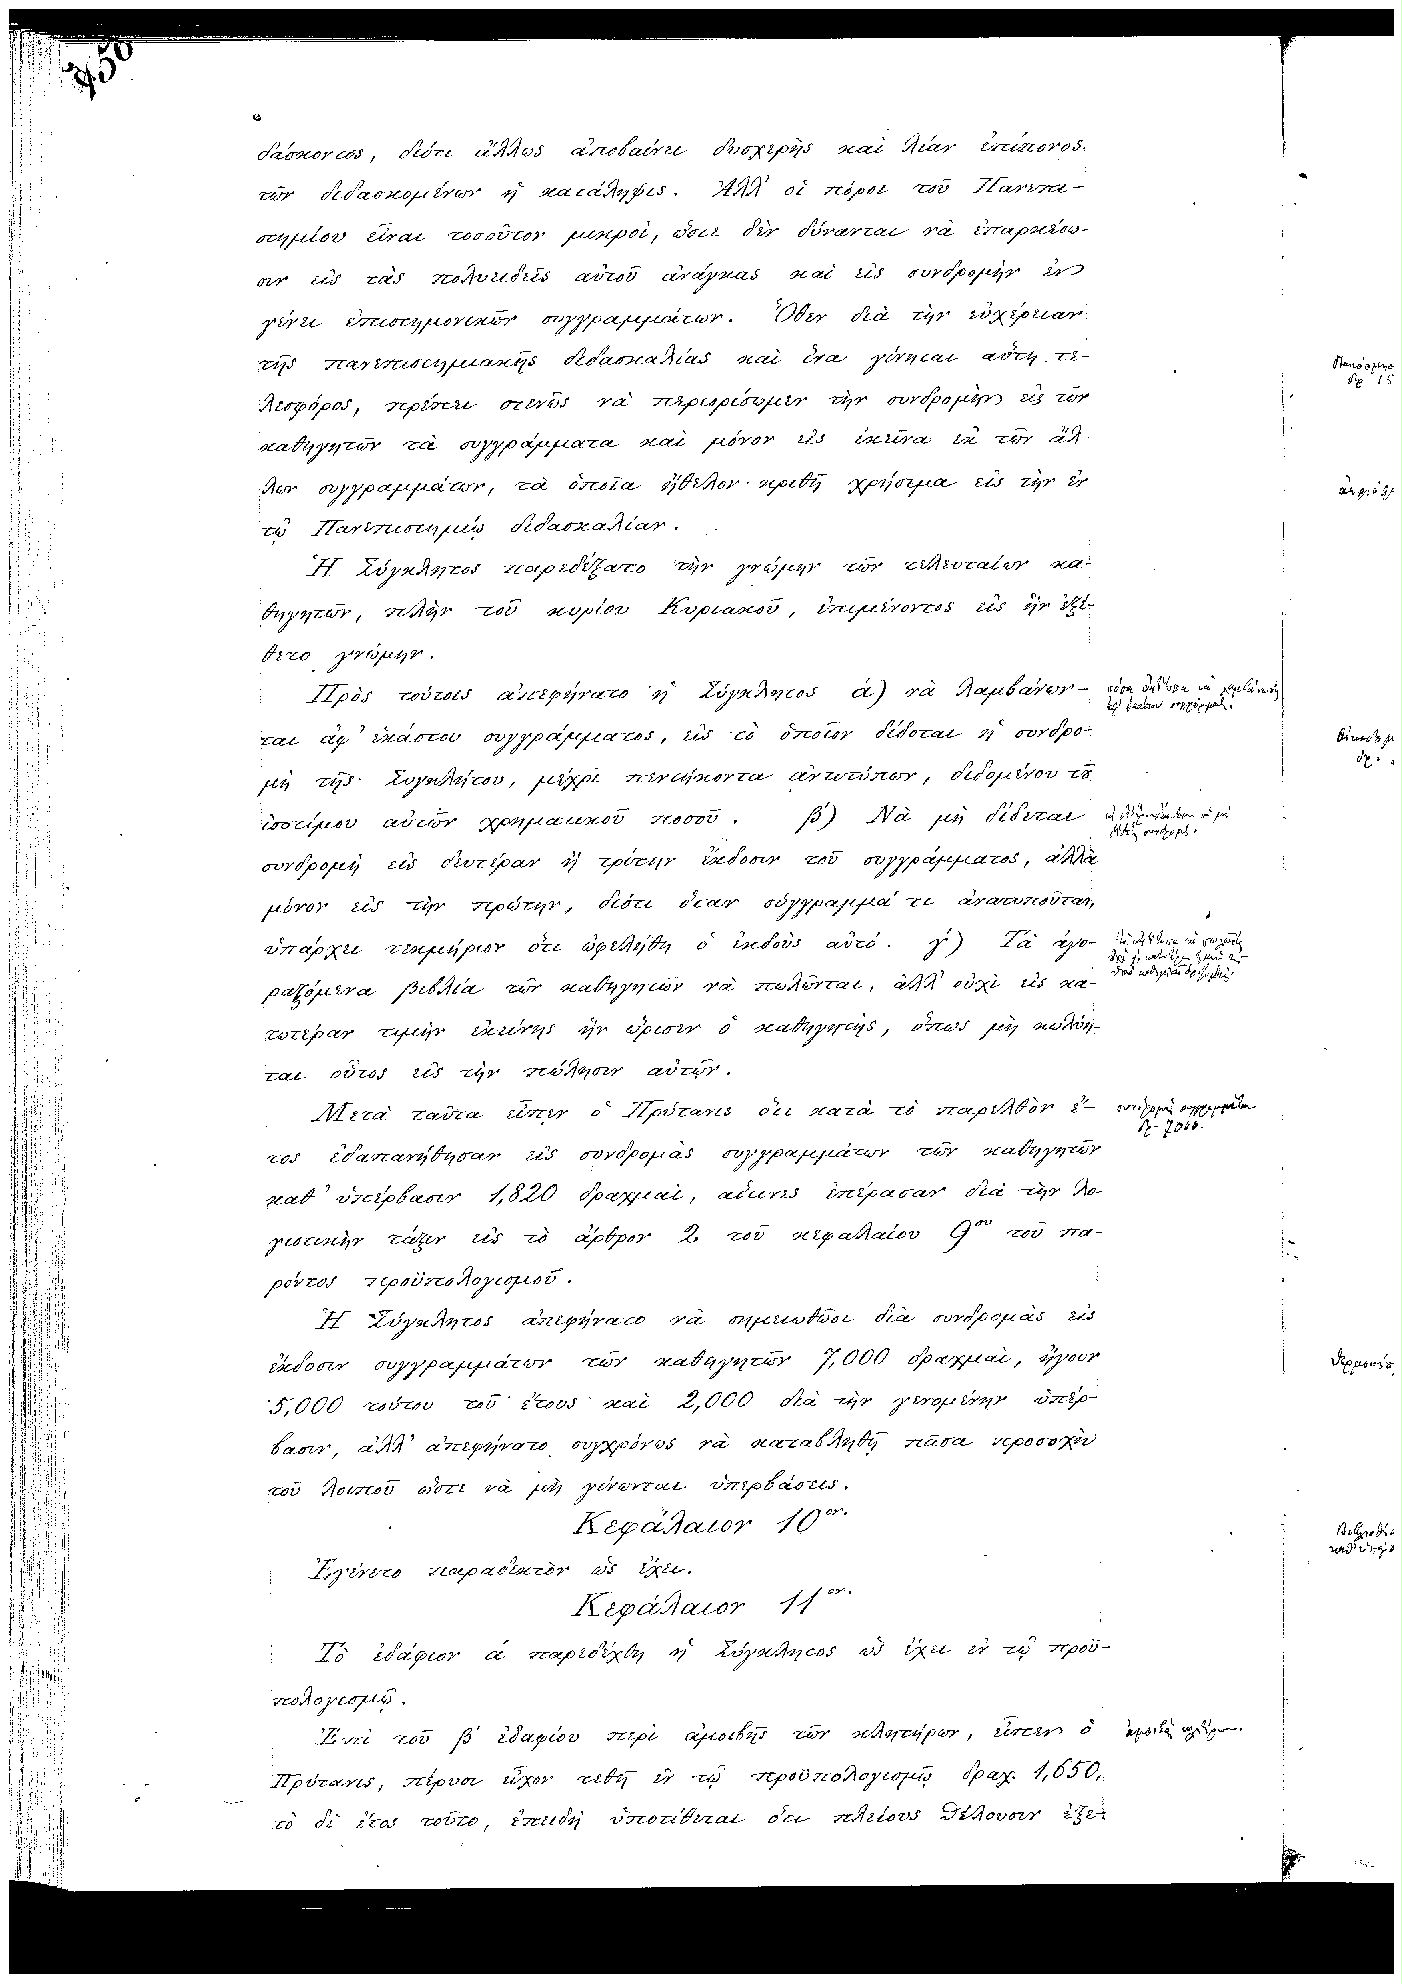 450
δάσκοντος, διότι ἄλλως ἀποβαίνει δυσχερὴς καὶ λίαν ἐπίπονος
τῶν διδασκομένων ἡ κατάληψις. Ἀλλ' οἱ πόροι τοῦ Πανεπι-
στημίου εἶναι τοσοῦτον μικροὶ, ὥστε δὲν δύνανται νὰ ἐπαρκέσω-
σιν εἰς τὰς πολυειδεῖς αὐτοῦ ἀνάγκας καὶ εἰς συνδρομὴν ἐν
γένει ἐπιστημονικῶν συγγραμμάτων. Ὅθεν διὰ τὴν εὐχέρειαν
τῆς πανεπιστημιακῆς διδασκαλίας καὶ ἵνα γίνηται αὕτη τε-
λεσφόρος, πρέπει στενῶς νὰ περιορίσωμεν τὴν συνδρομὴν εἰς τῶν
καθηγητῶν τὰ συγγράμματα καὶ μόνον εἰς ἐκεῖνα ἐκ τῶν ἄλ-
λων συγγραμμάτων, τὰ ὁποῖα ἤθελον κριθῆ χρήσιμα εἰς τὴν ἐν
τῷ Πανεπιστημίῳ διδασκαλίαν.
Ἡ Σύγκλητος παρεδέξατο τὴν γνώμην τῶν τελευταίων κα-
θηγητῶν, πλὴν τοῦ κυρίου Κυριακοῦ, ἐπιμένοντος εἰς ἣν ἐξέ-
θετο γνώμην.
Πρὸς τούτοις ἀπεφήνατο ἡ Σύγκλητος ά) νὰ λαμβάνων-
ται ἀφ' ἑκάστου συγγράμματος, εἰς τὸ ὁποῖον δίδοται ἡ συνδρο-
μὴ τῆς Συγκλήτου, μέχρι πεντήκοντα ἀντιτύπων, διδομένου τοῦ
ἰσοτίμου αὐτῶν χρηματικοῦ ποσοῦ. β́) Νὰ μὴ δίδεται
συνδρομὴ εἰς δευτέραν ἢ τρίτην ἔκδοσιν τοῦ συγγράμματος, ἀλλὰ
μόνον εἰς τὴν πρώτην, διότι ὅταν σύγγραμμά τι ἀνατυποῦται,
ὑπάρχει τεκμήριον ὅτι ὠφελήθη ὁ ἐκδοὺς αὐτό. γ́) Τὰ ἀγο-
ραζόμενα βιβλία τῶν καθηγητῶν νὰ πωλῶνται, ἀλλ' οὐχὶ εἰς κα-
τωτέραν τιμὴν ἐκείνης ἣν ὥρισεν ὁ καθηγητὴς, ὅπως μὴ κωλύη-
ται οὗτος εἰς τὴν πώλησιν αὐτῶν.
Μετὰ ταῦτα εἶπεν ὁ Πρύτανις ὅτι κατὰ τὸ παρελθὸν ἔ-
τος ἐδαπανήθησαν εἰς συνδρομὰς συγγραμμάτων τῶν καθηγητῶν
καθ' ὑπέρβασιν 1,820 δραχμαὶ, αἵτινες ἐπέρασαν διὰ τὴν λο-
γιστικὴν τάξιν εἰς τὸ ἄρθρον 2 τοῦ κεφαλαίου 9ου τοῦ πα-
ρόντος προϋπολογισμοῦ.
Ἡ Σύγκλητος ἀπεφήνατο νὰ σημειωθῶσι διὰ συνδρομὰς εἰς
ἔκδοσιν συγγραμμάτων τῶν καθηγητῶν 7,000 δραχμαὶ, ἤγουν
5,000 τούτου τοῦ ἔτους καὶ 2,000 διὰ τὴν γενομένην ὑπέρ-
βασιν, ἀλλ' ἀπεφήνατο συγχρόνως νὰ καταβληθῇ πᾶσα προσοχὴ
τοῦ λοιποῦ ὥστε νὰ μὴ γίνωνται ὑπερβάσεις.
συνδρομῆς συγγραμμάτων
δρ. 7000.
Κεφάλαιον 10ον.
Ἐγένετο παραδεκτὸν ὡς ἔχει.
Κεφάλαιον 11ον.
Τὸ ἐδάφιον ά παρεδέχθη ἡ Σύγκλητος ὡς ἔχει ἐν τῷ προϋ-
πολογισμῷ.
Ἐπὶ τοῦ β́ ἐδαφίου περὶ ἀμοιβῆς τῶν κλητήρων, εἶπεν ὁ
ἀμοιβὴ κλητήρων.
Πρύτανις, πέρυσι εἶχον τεθῆ ἐν τῷ προϋπολογισμῷ δραχ. 1,650,
τὸ δὲ ἔτος τοῦτο, ἐπειδὴ ὑποτίθεται ὅτι πλείους θέλουσιν ἐξε-